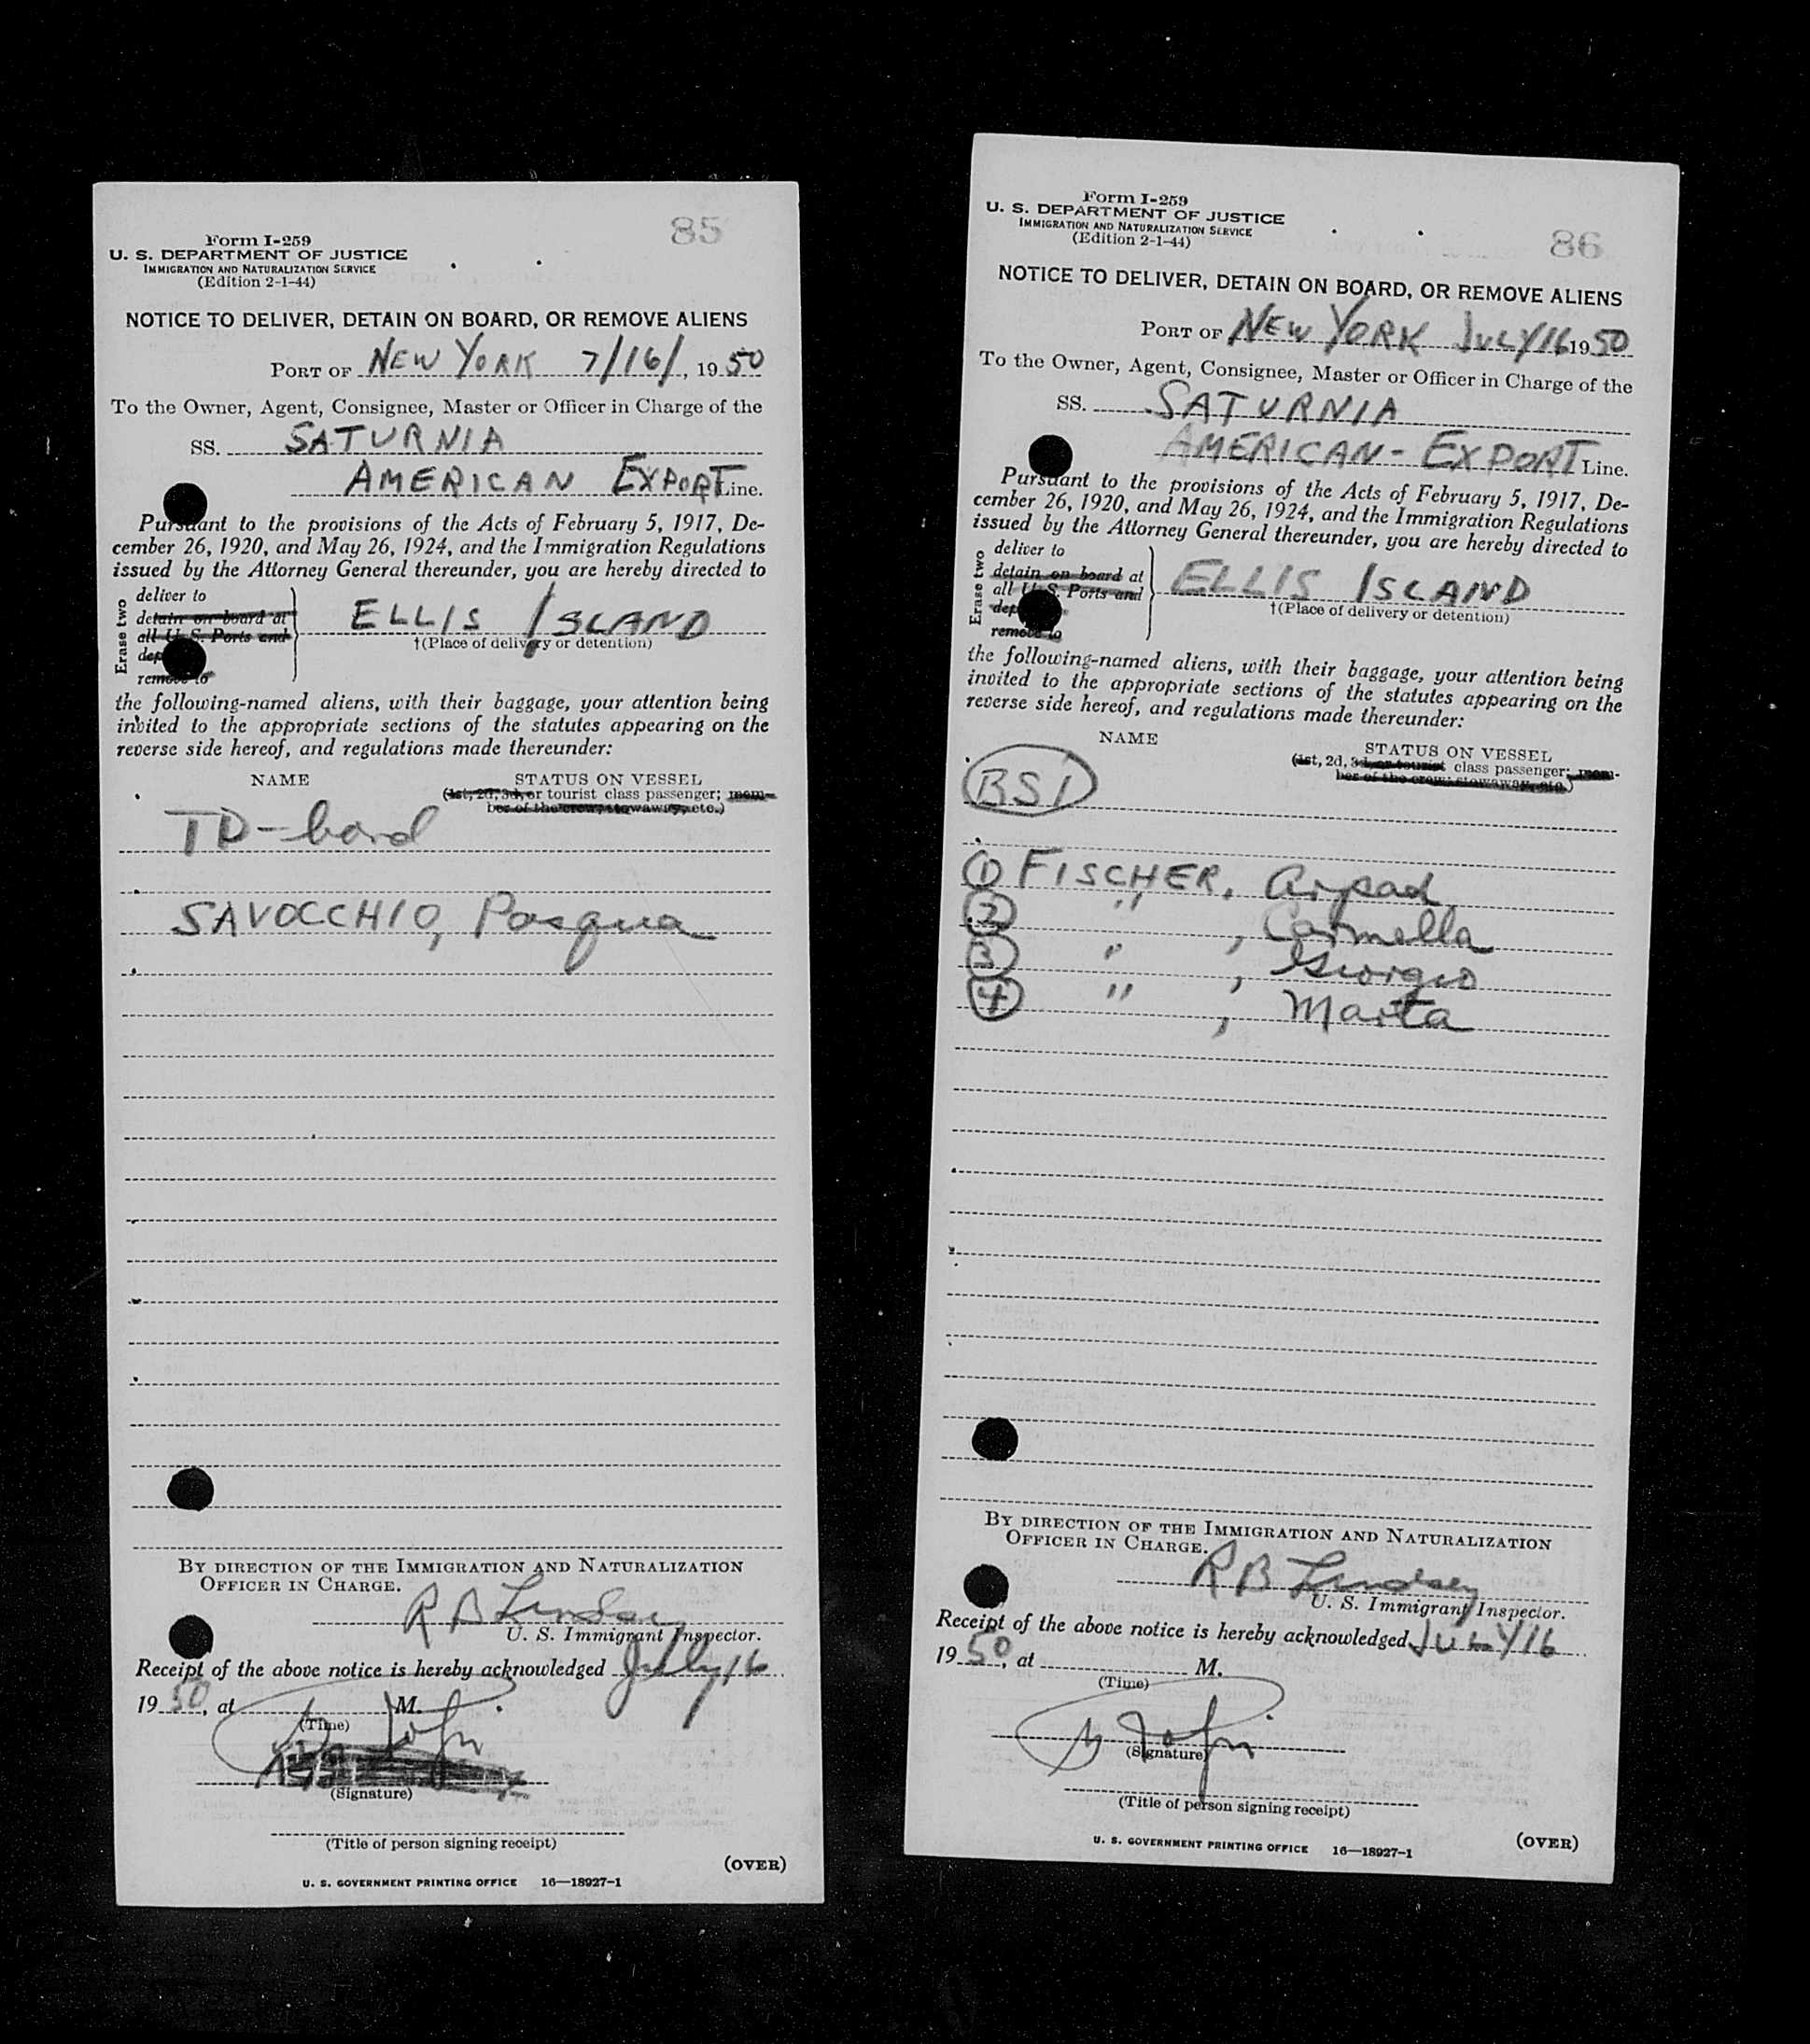 85
Form I-259
U. S. DEPARTMENT OF JUSTICE
IMMIGRATION AND NATURALIZATION SERVICE
(Edition 2-1-44)
NOTICE TO DELIVER, DETAIN ON BOARD, OR REMOVE ALIENS
PORT OF NEW YORK 7/16/, 1950
To the Owner, Agent, Consignee, Master or Officer in Charge of the
SS. SATURNIA
AMERICAN EXPORT Line.
Pursuant to the provisions of the Acts of February 5, 1917, De-
cember 26, 1920, and May 26, 1924, and the Immigration Regulations
issued by the Attorney General thereunder, you are hereby directed to
Erase two
deliver to
detain on board at
all U. S. Ports and
remove to
ELLIS ISLAND
†(Place of delivery or detention)
the following-named aliens, with their baggage, your attention being
invited to the appropriate sections of the statutes appearing on the
reverse side hereof, and regulations made thereunder:
NAME STATUS ON VESSEL
(1st, 2d, 3d, or tourist class passenger; mem-
ber of the crew; stowaway, etc.)
TD-bond
SAVOCCHIO, Pasqua
BY DIRECTION OF THE IMMIGRATION AND NATURALIZATION
OFFICER IN CHARGE.
R B Lindsey
U. S. Immigrant Inspector.
Receipt of the above notice is hereby acknowledged July, 16
1950, at M.
(Time)
(Signature)
(Title of person signing receipt)
(OVER)
U. S. GOVERNMENT PRINTING OFFICE 16—18927-1
86
Form I-259
U. S. DEPARTMENT OF JUSTICE
IMMIGRATION AND NATURALIZATION SERVICE
(Edition 2-1-44)
NOTICE TO DELIVER, DETAIN ON BOARD, OR REMOVE ALIENS
PORT OF NEW YORK JULY 16 1950
To the Owner, Agent, Consignee, Master or Officer in Charge of the
SS. SATURNIA
AMERICAN-EXPORT Line.
Pursuant to the provisions of the Acts of February 5, 1917, De-
cember 26, 1920, and May 26, 1924, and the Immigration Regulations
issued by the Attorney General thereunder, you are hereby directed to
Erase two
deliver to
detain on board at
all U. S. Ports and
remove to
ELLIS ISLAND
†(Place of delivery or detention)
the following-named aliens, with their baggage, your attention being
invited to the appropriate sections of the statutes appearing on the
reverse side hereof, and regulations made thereunder:
NAME STATUS ON VESSEL
(1st, 2d, 3d, or tourist class passenger; mem-
ber of the crew; stowaway, etc.)
BSI
1 FISCHER, Arpad
2 " , Carmella
3 " , Giorgio
4 " , Marta
BY DIRECTION OF THE IMMIGRATION AND NATURALIZATION
OFFICER IN CHARGE.
R B Lindsey
U. S. Immigrant Inspector.
Receipt of the above notice is hereby acknowledged JULY 16
1950, at M.
(Time)
(Signature)
(Title of person signing receipt)
U. S. GOVERNMENT PRINTING OFFICE 16—18927-1
(OVER)